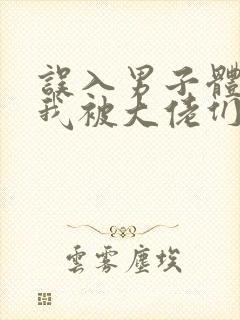 誤入男子體
我被大佬们
雲霧塵埃